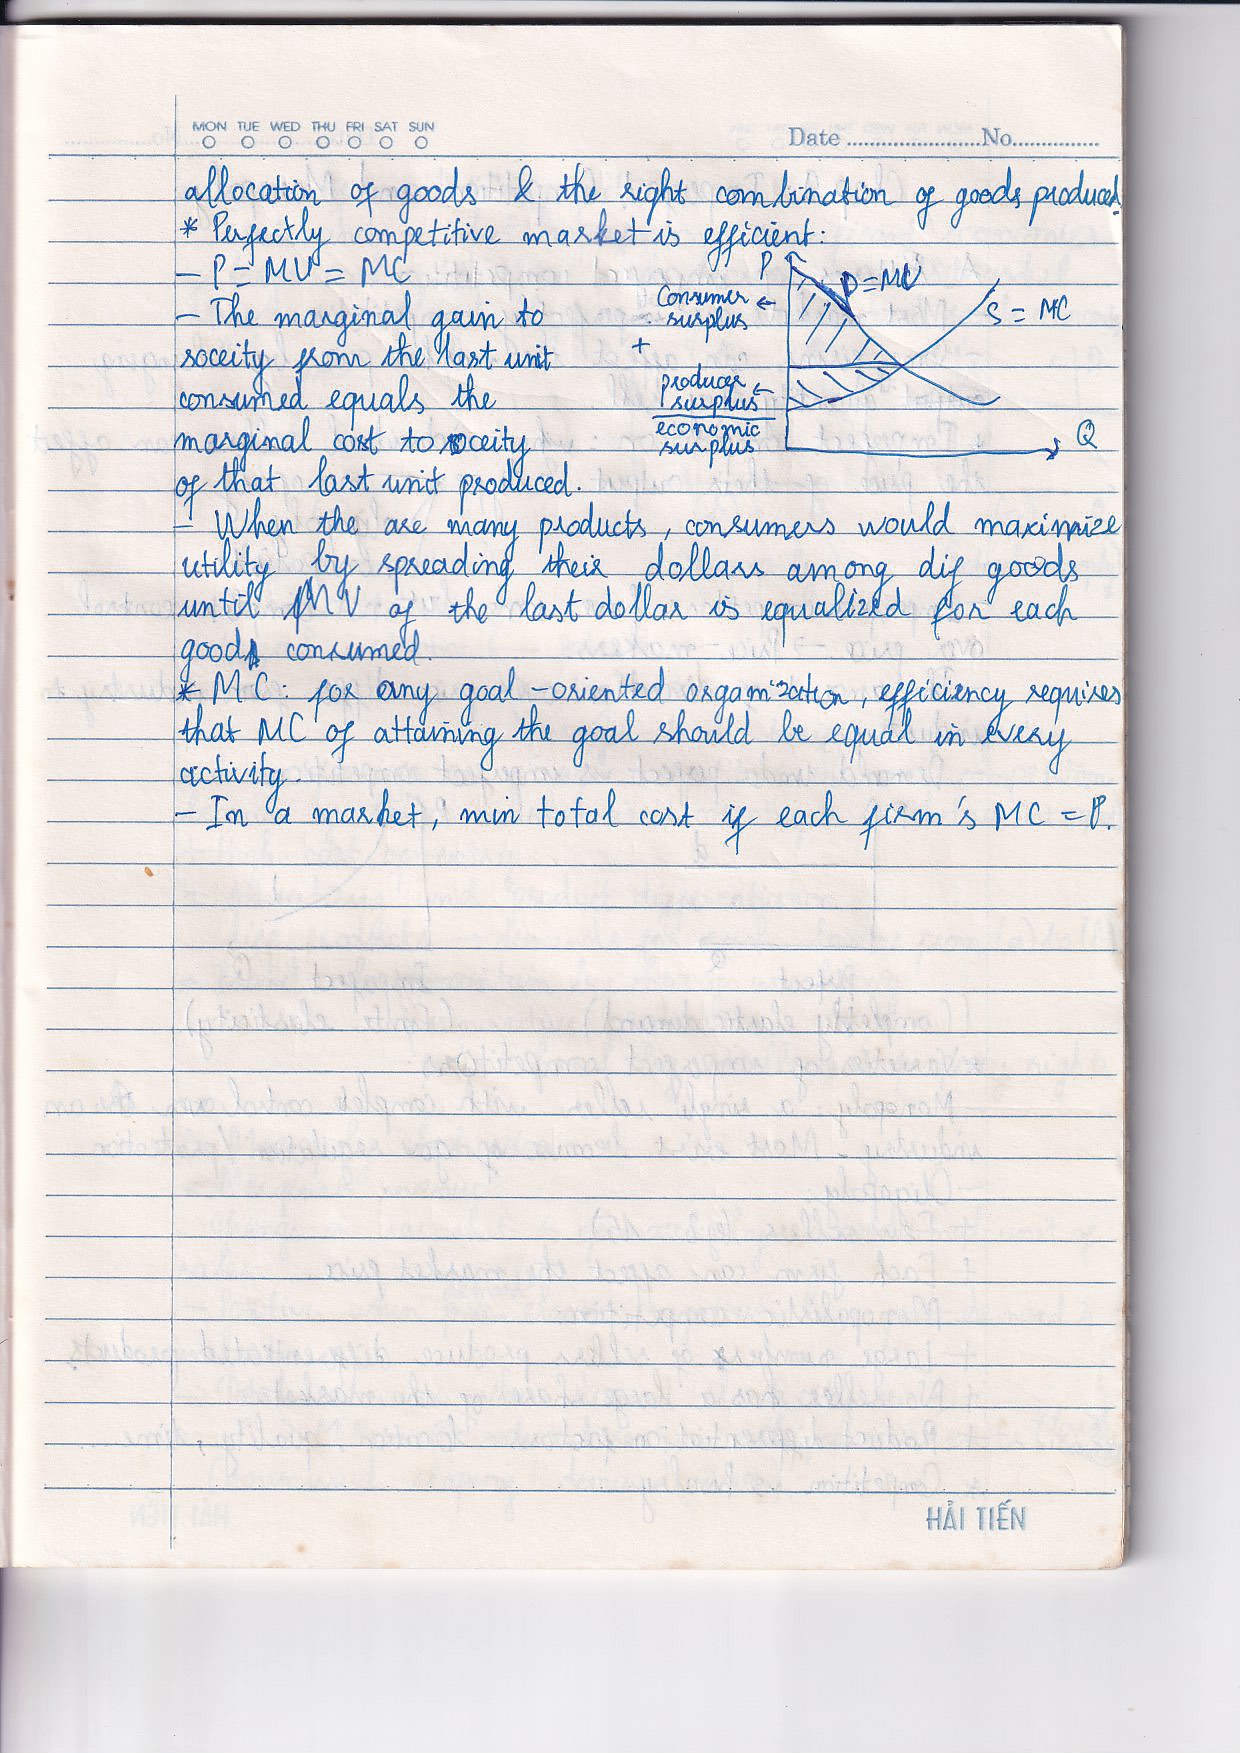 MON TUE WED THU FRI SAT SUN
Date ........................No................
allocation of goods & the right combination of goods produced.
* Perfectly competitive market is efficient:
- P = MU = MC
- The marginal gain to
soceity from the last unit
consumed equals the
marginal cost to soceity
of that last unit produced.
P
D = MU
S = MC
Consumer
surplus
+
producer
surplus
economic
surplus
Q
- When the are many products, consumers would maximize
utility by spreading their dollars among dif goods
until MU of the last dollar is equalized for each
good consumed.
* MC: for any goal-oriented organization, efficiency requires
that MC of attaining the goal should be equal in every
activity.
- In a market, min total cost if each firm's MC = P.
HẢI TIẾN